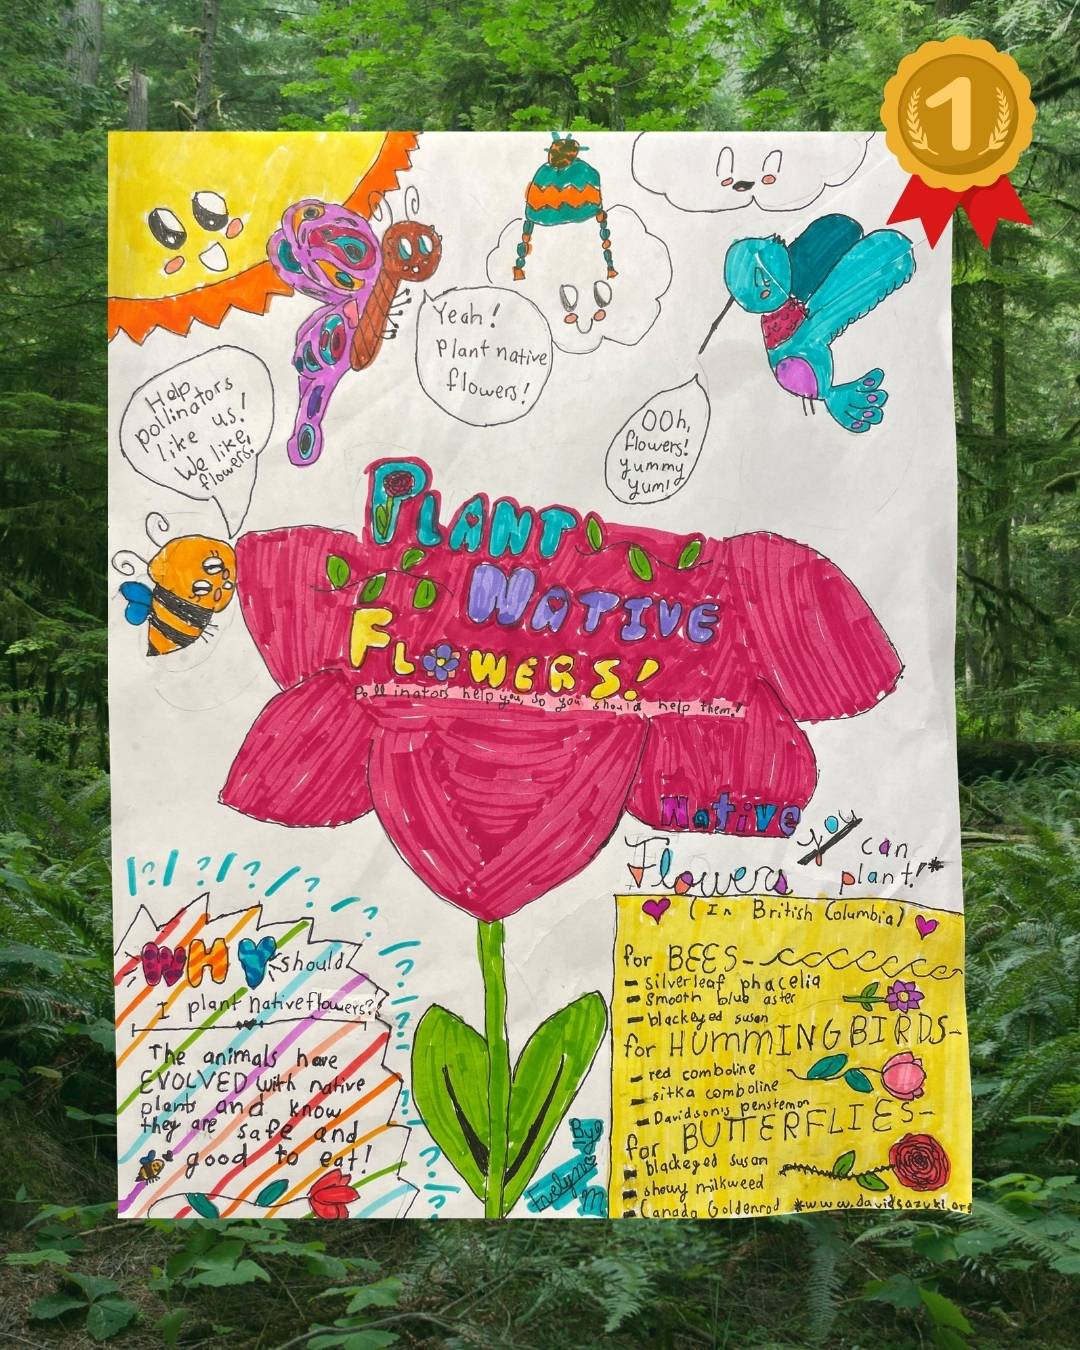 1
Yeah!
Plant native
flowers!
Help
pollinators
like us!
We like
flowers!
OOh,
flowers!
yummy
yum!
PLANT
NATIVE
FLOWERS!
Pollinators help you, so you should help them!
Native
Flowers you can
plant!*
(In British Columbia)
for BEES-
- silverleaf phacelia
- Smooth blue aster
- blackeyed susan
for HUMMINGBIRDS-
- red comboline
- sitka comboline
- Davidson's penstemon
for BUTTERFLIES-
- blackeyed susan
- showy milkweed
- Canada Goldenrod *www.davidsazuki.org
WHY should
I plant native flowers?
The animals have
EVOLVED with native
plants and know
they are safe and
good to eat!
By:
Evelyn
M